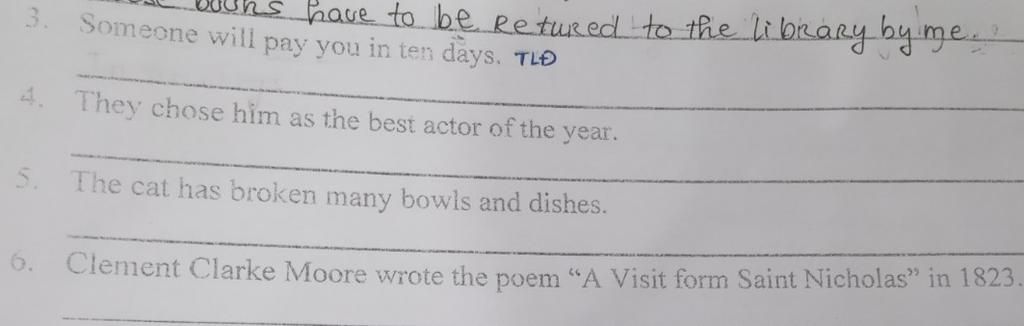 books have to be Retured to the library by me.
3. Someone will pay you in ten days. TLĐ
4. They chose him as the best actor of the year.
5. The cat has broken many bowls and dishes.
6. Clement Clarke Moore wrote the poem “A Visit form Saint Nicholas” in 1823.